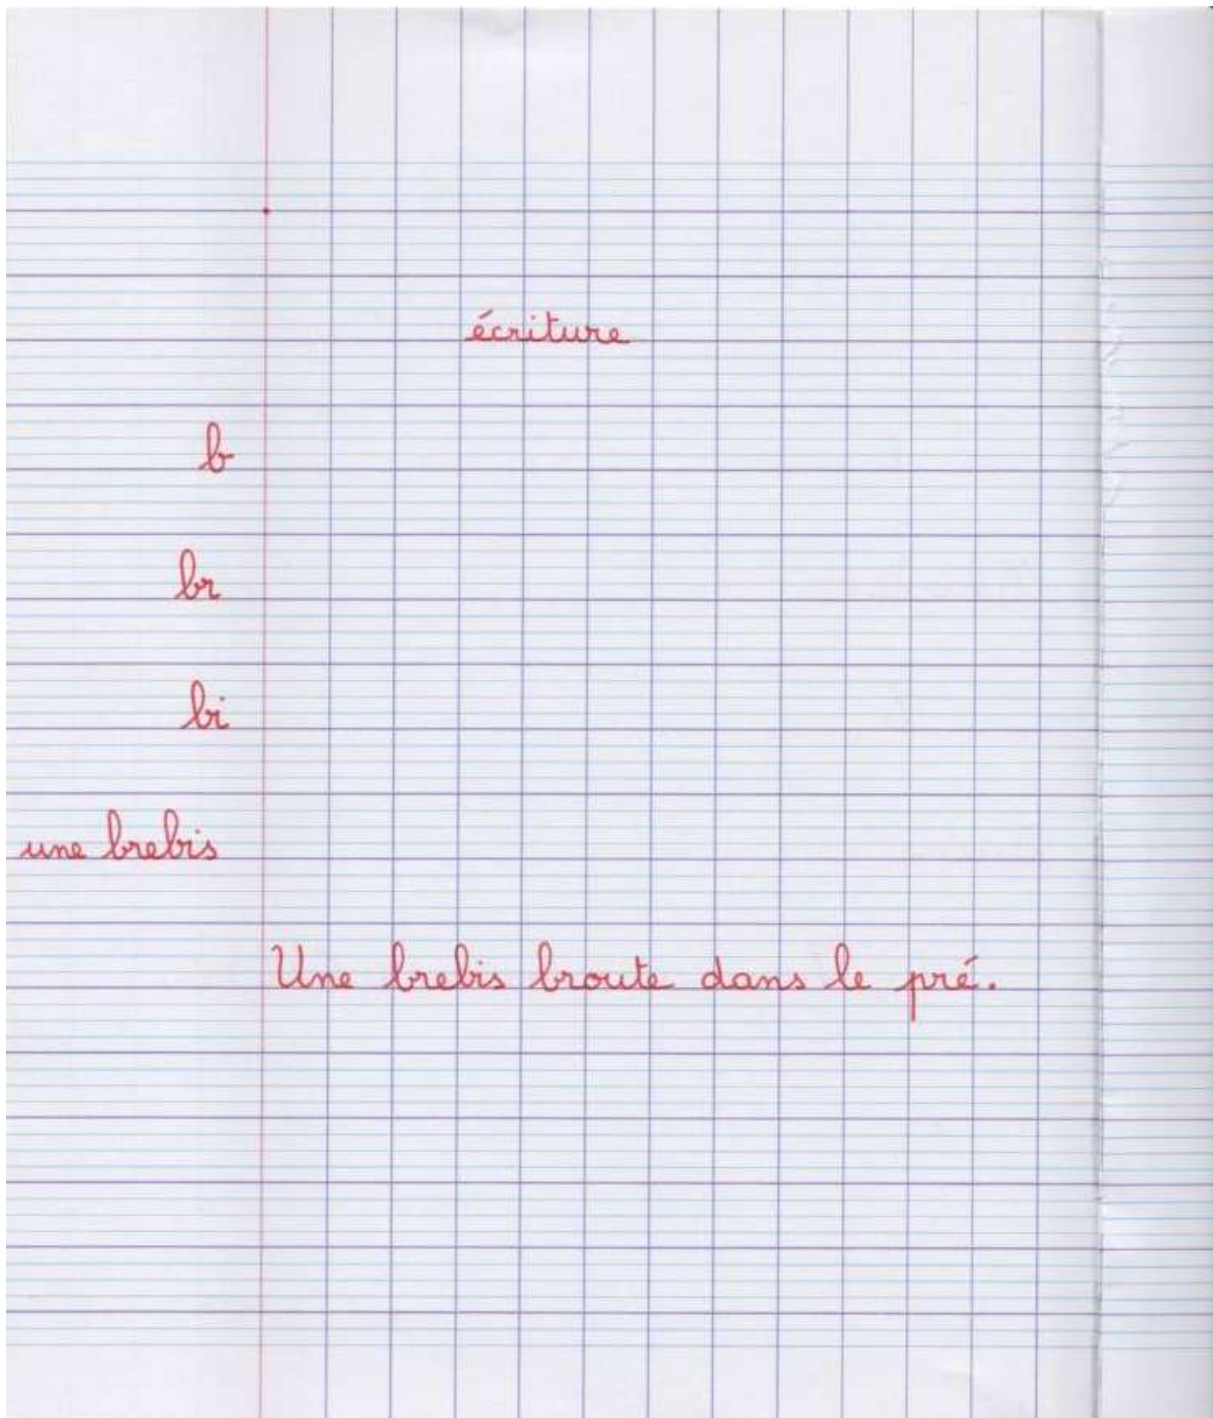 écriture
b
br
bi
une brebis
Une brebis broute dans le pré.